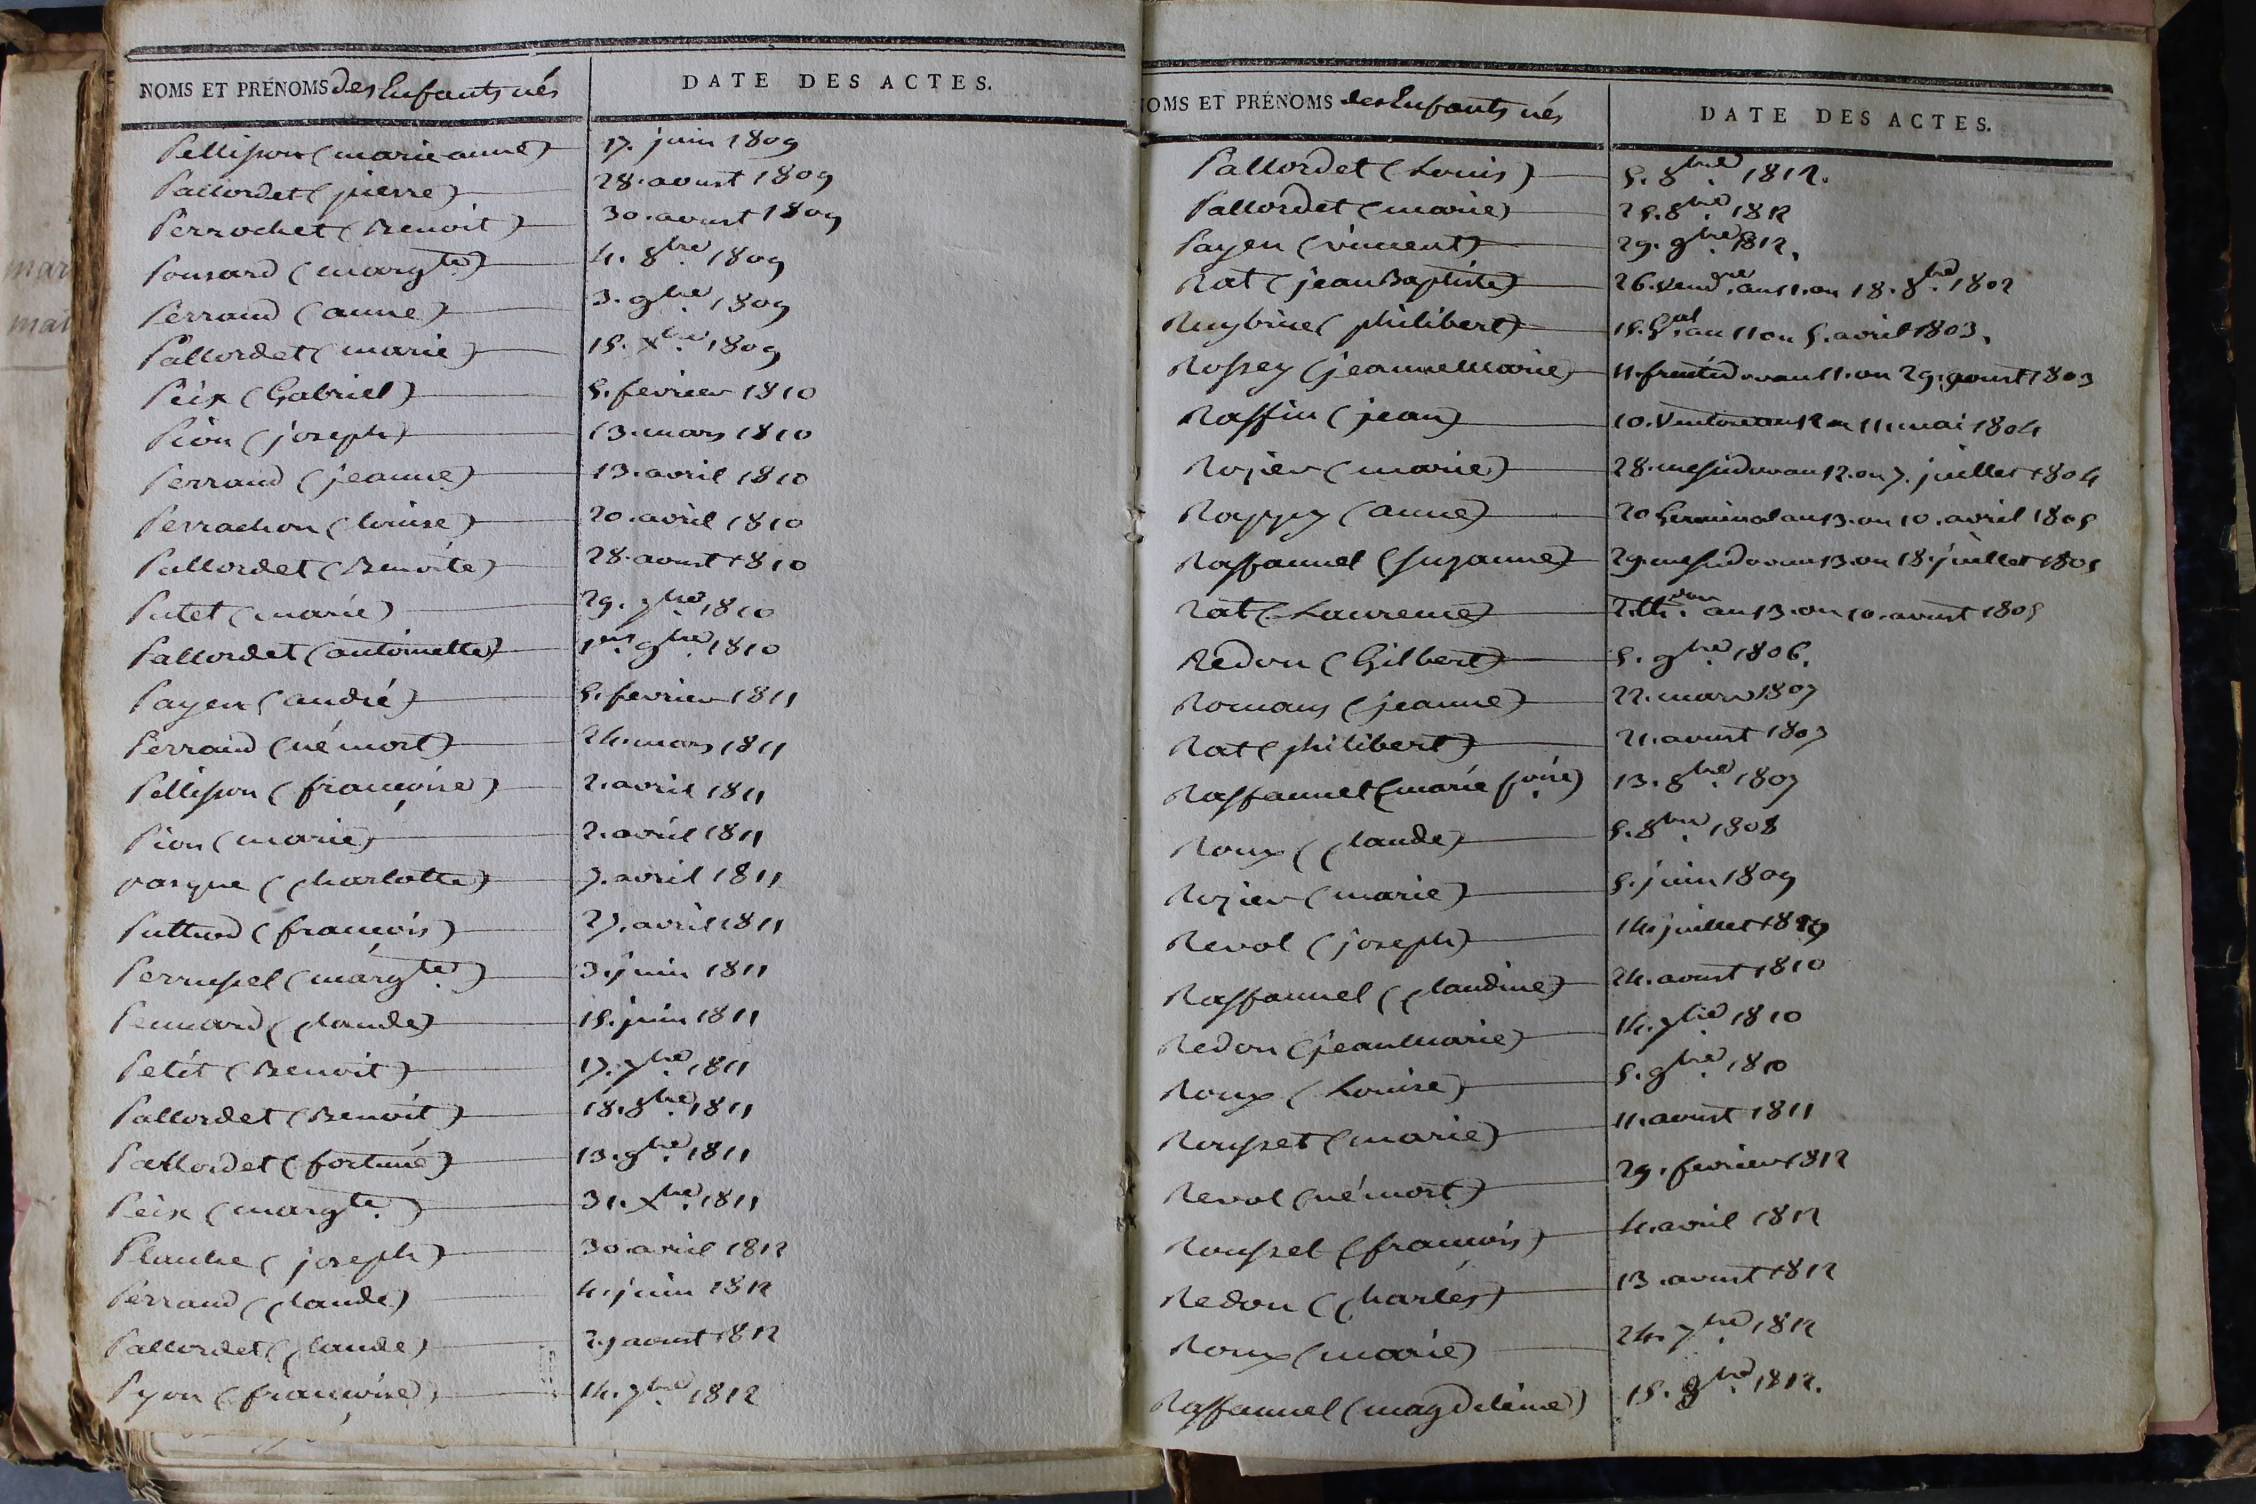 NOMS ET PRÉNOMS des Enfants nés
DATE DES ACTES.
Pellisson (marie anne) 17. juin 1809
Pallordet (pierre) 28. aoust 1809
Perrochet (Benoit) 30. aoust 1809
Ponsard (margte) 4. 8bre 1809
Perraud (anne) 3. 9bre 1809
Pallordet (marie) 15. Xbre 1809
Peix (Gabriel) 5. fevrier 1810
Pion (joseph) 13. mars 1810
Perraud (jeanne) 13. avril 1810
Perrachon (louise) 20. avril 1810
Pallordet (Benoite) 28. aoust 1810
Putet (marie) 29. 7bre 1810
Pallordet (antoinette) 1er 9bre 1810
Payen (andré) 5. fevrier 1811
Perraud (né mort) 24. mars 1811
Pellisson (françoise) 2. avril 1811
Pion (marie) 2. avril 1811
pasque (charlotte) 7. avril 1811
(françois) 27. avril 1811
Perrussel (margte) 3. juin 1811
(claude) 15. juin 1811
Petit (Benoit) 17. 7bre 1811
Pallordet (Benoit) 18. 8bre 1811
Pallordet (fortuné) 13. 9bre 1811
Peix (margte) 31. Xbre 1811
Planche (joseph) 30 avril 1812
Perraud (claude) 4. juin 1812
Pallordet (claude) aoust 1812
Pyon (françoise) 14. 7bre 1812
NOMS ET PRÉNOMS des Enfants nés
DATE DES ACTES.
Pallordet (Louis) 5. 8bre 1812.
Pallordet (marie) 25. 8bre 1812
Payen (vincent) 29. 9bre 1812.
Rat (jean Baptiste) 26. vendre. an 11. ou 18. 8bre 1802
(philibert) 15. Gal. an 11 ou 5. avril 1803.
Rossey (jeanne Marie) 11. fructidor an 11. ou 29. aoust 1803
Raffin (jean) 10. an 12 ou 11. mai 1804
Rozier (marie) 28. messidor an 12. ou 7. juillet 1804
(anne) 20 Germinal an 13. ou 10. avril 1805
Raffannel (suzanne) 29. messidor an 13. ou 18. juillet 1805
Rat (Laurence) an 13. ou 10. aoust 1805
Redon (Gilbert) 5. 9bre 1806.
Romans (jeanne) 22. mars 1807
Rat (philibert) 21. aoust 1807
Raffannel (marie) 13. 8bre 1807
Roux (claude) 5. 8bre 1808
Rozier (marie) 5. juin 1809
Revol (joseph) 14. juillet 1809
Raffannel (claudine) 24. aoust 1810
Redon (jean Marie) 14. 7bre 1810
Roux (Louise) 5. 9bre 1810
Rousset (marie) 11. aoust 1811
Revol (né mort) 29. fevrier 1812
Roussel (françois) 4. avril 1812
Redon (charles) 13. aoust 1812
Roux (marie) 24. 7bre 1812
Raffannel (magdeleine) 15. 1812.